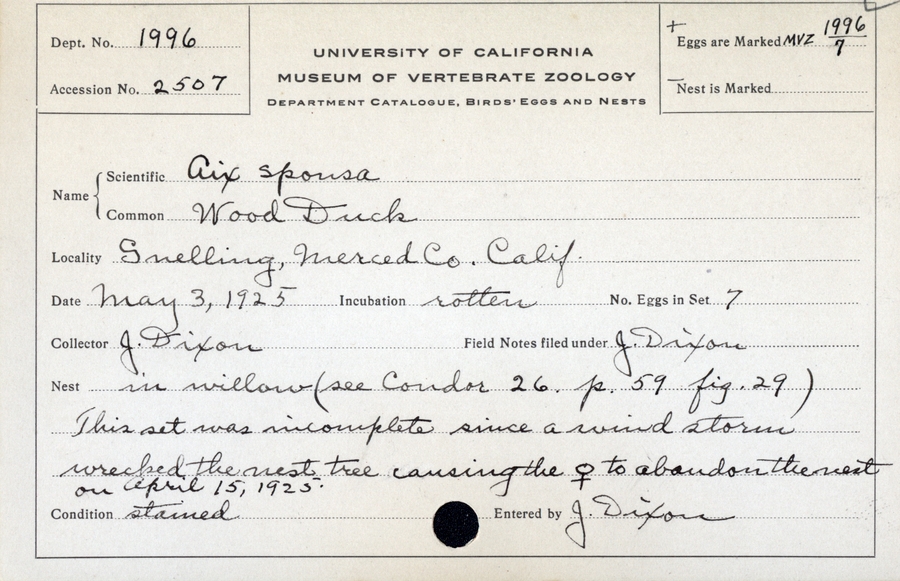 Dept. No. 1996
Accession No. 2507
UNIVERSITY OF CALIFORNIA
MUSEUM OF VERTEBRATE ZOOLOGY
DEPARTMENT CATALOGUE, BIRDS' EGGS AND NESTS
+ Eggs are Marked MVZ 1996/7
— Nest is Marked
Name { Scientific Aix sponsa
Common Wood Duck
Locality Snelling, Merced Co. Calif.
Date May 3, 1925 Incubation rotten No. Eggs in Set 7
Collector J. Dixon Field Notes filed under J. Dixon
Nest in willow (see Condor 26. p. 59 fig. 29)
This set was incomplete since a wind storm
wrecked the nest tree causing the ♀ to abandon the nest
on April 15, 1925.
Condition stained Entered by J. Dixon